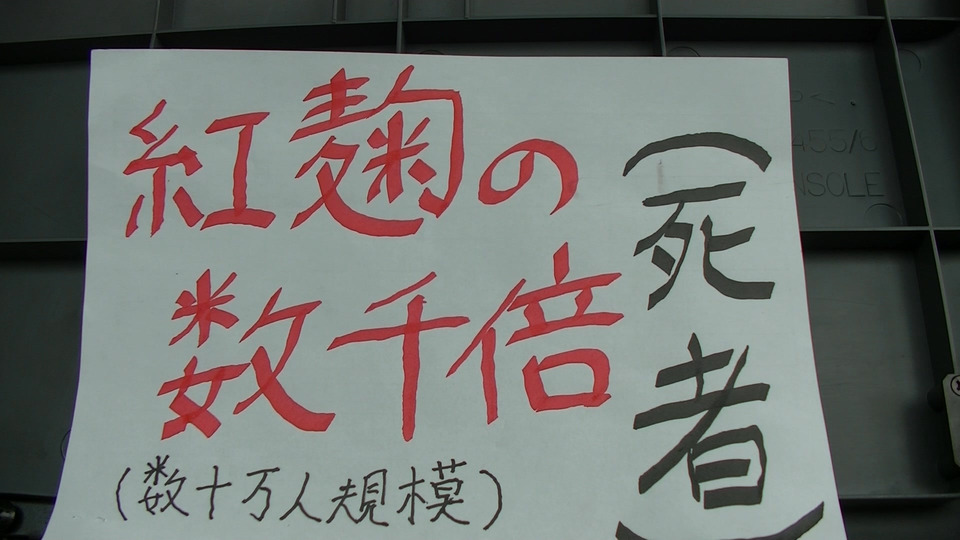 紅麹の
数千倍
(数十万人規模)
(死者)
455/6
NSOLE